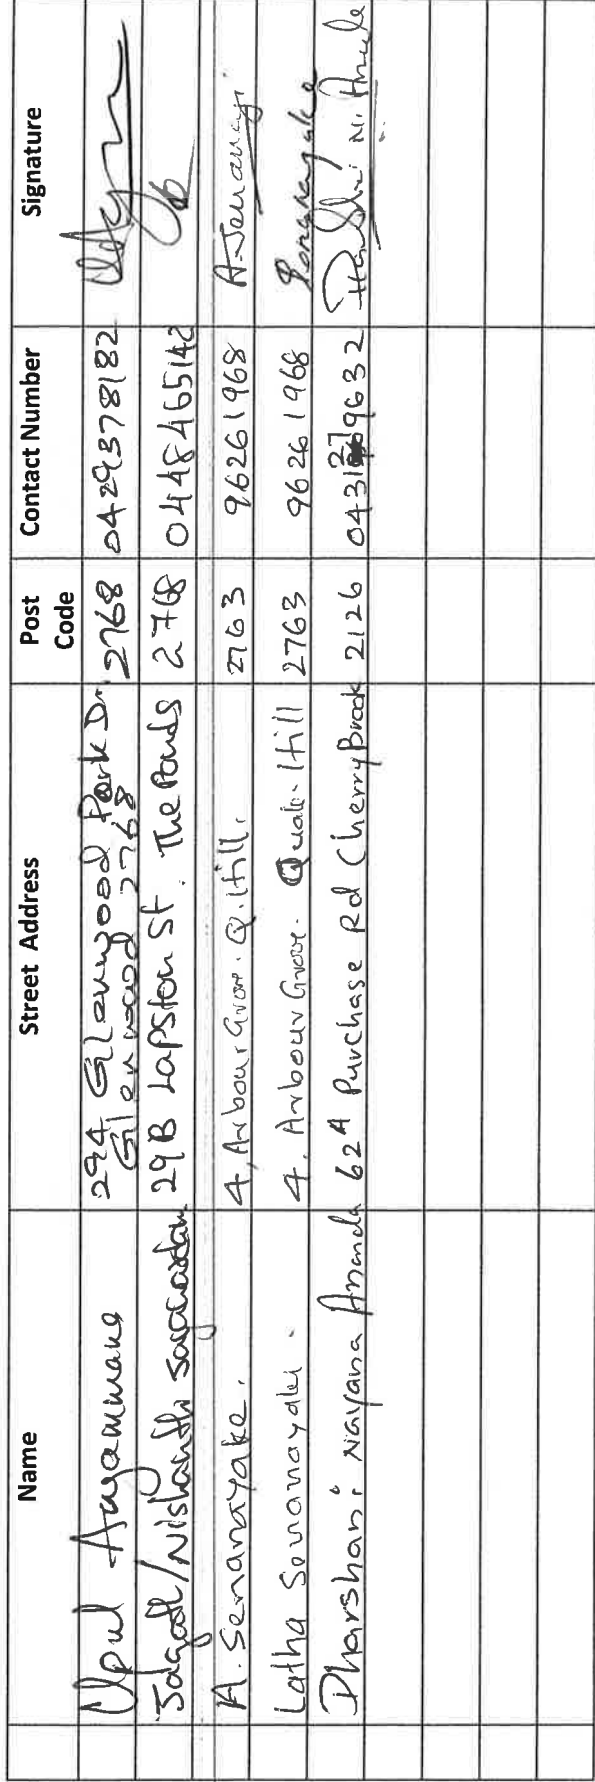 Name Street Address Post Code Contact Number Signature
Upul Angammana 294 Glenwood Park Dr. 2768 0429378182
Glenwood 2768
Jagath/Nishanthi 29B Lapston St. The Ponds 2768 0448465142
A. Senanayake. 4, Arbour Grove. Q. Hill. 2763 96261968 A. Senanayi
Latha Senanayake. 4, Arbour Grove. Quake Hill 2763 96261968
Dharshani Nayana Ananda 62A Purchase Rd CherryBrook 2126 0431279632